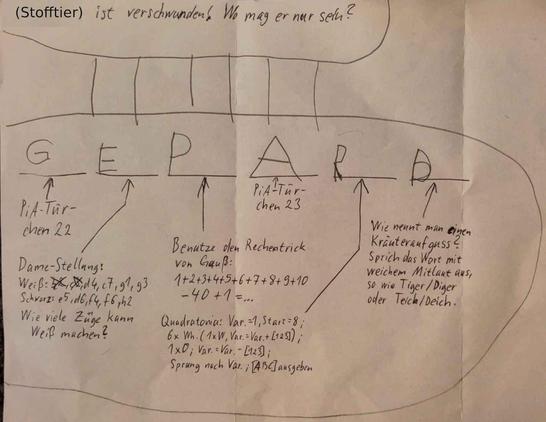 (Stofftier) ist verschwunden! Wo mag er nur sein?
G E P A R D
PiA-Tür-
chen 22
PiA-Tür-
chen 23
Dame-Stellung:
Weiß: d4, c7, g1, g3
Schwarz: e5, d6, f4, f6, h2
Wie viele Züge kann
Weiß machen?
Benutze den Rechentrick
von Gauß:
1+2+3+4+5+6+7+8+9+10
-40+1=...
Quadratoria: Var.=1, Start=8;
6x Wh. (1xW, Var.=Var.+[123]);
1xO; Var.=Var.-[123];
Sprung nach Var.; [ABC] ausgeben
Wie nennt man einen
Kräuteraufguss?
Sprich das Wort mit
weichem Mitlaut aus,
so wie Tiger/Diger
oder Teich/Deich.